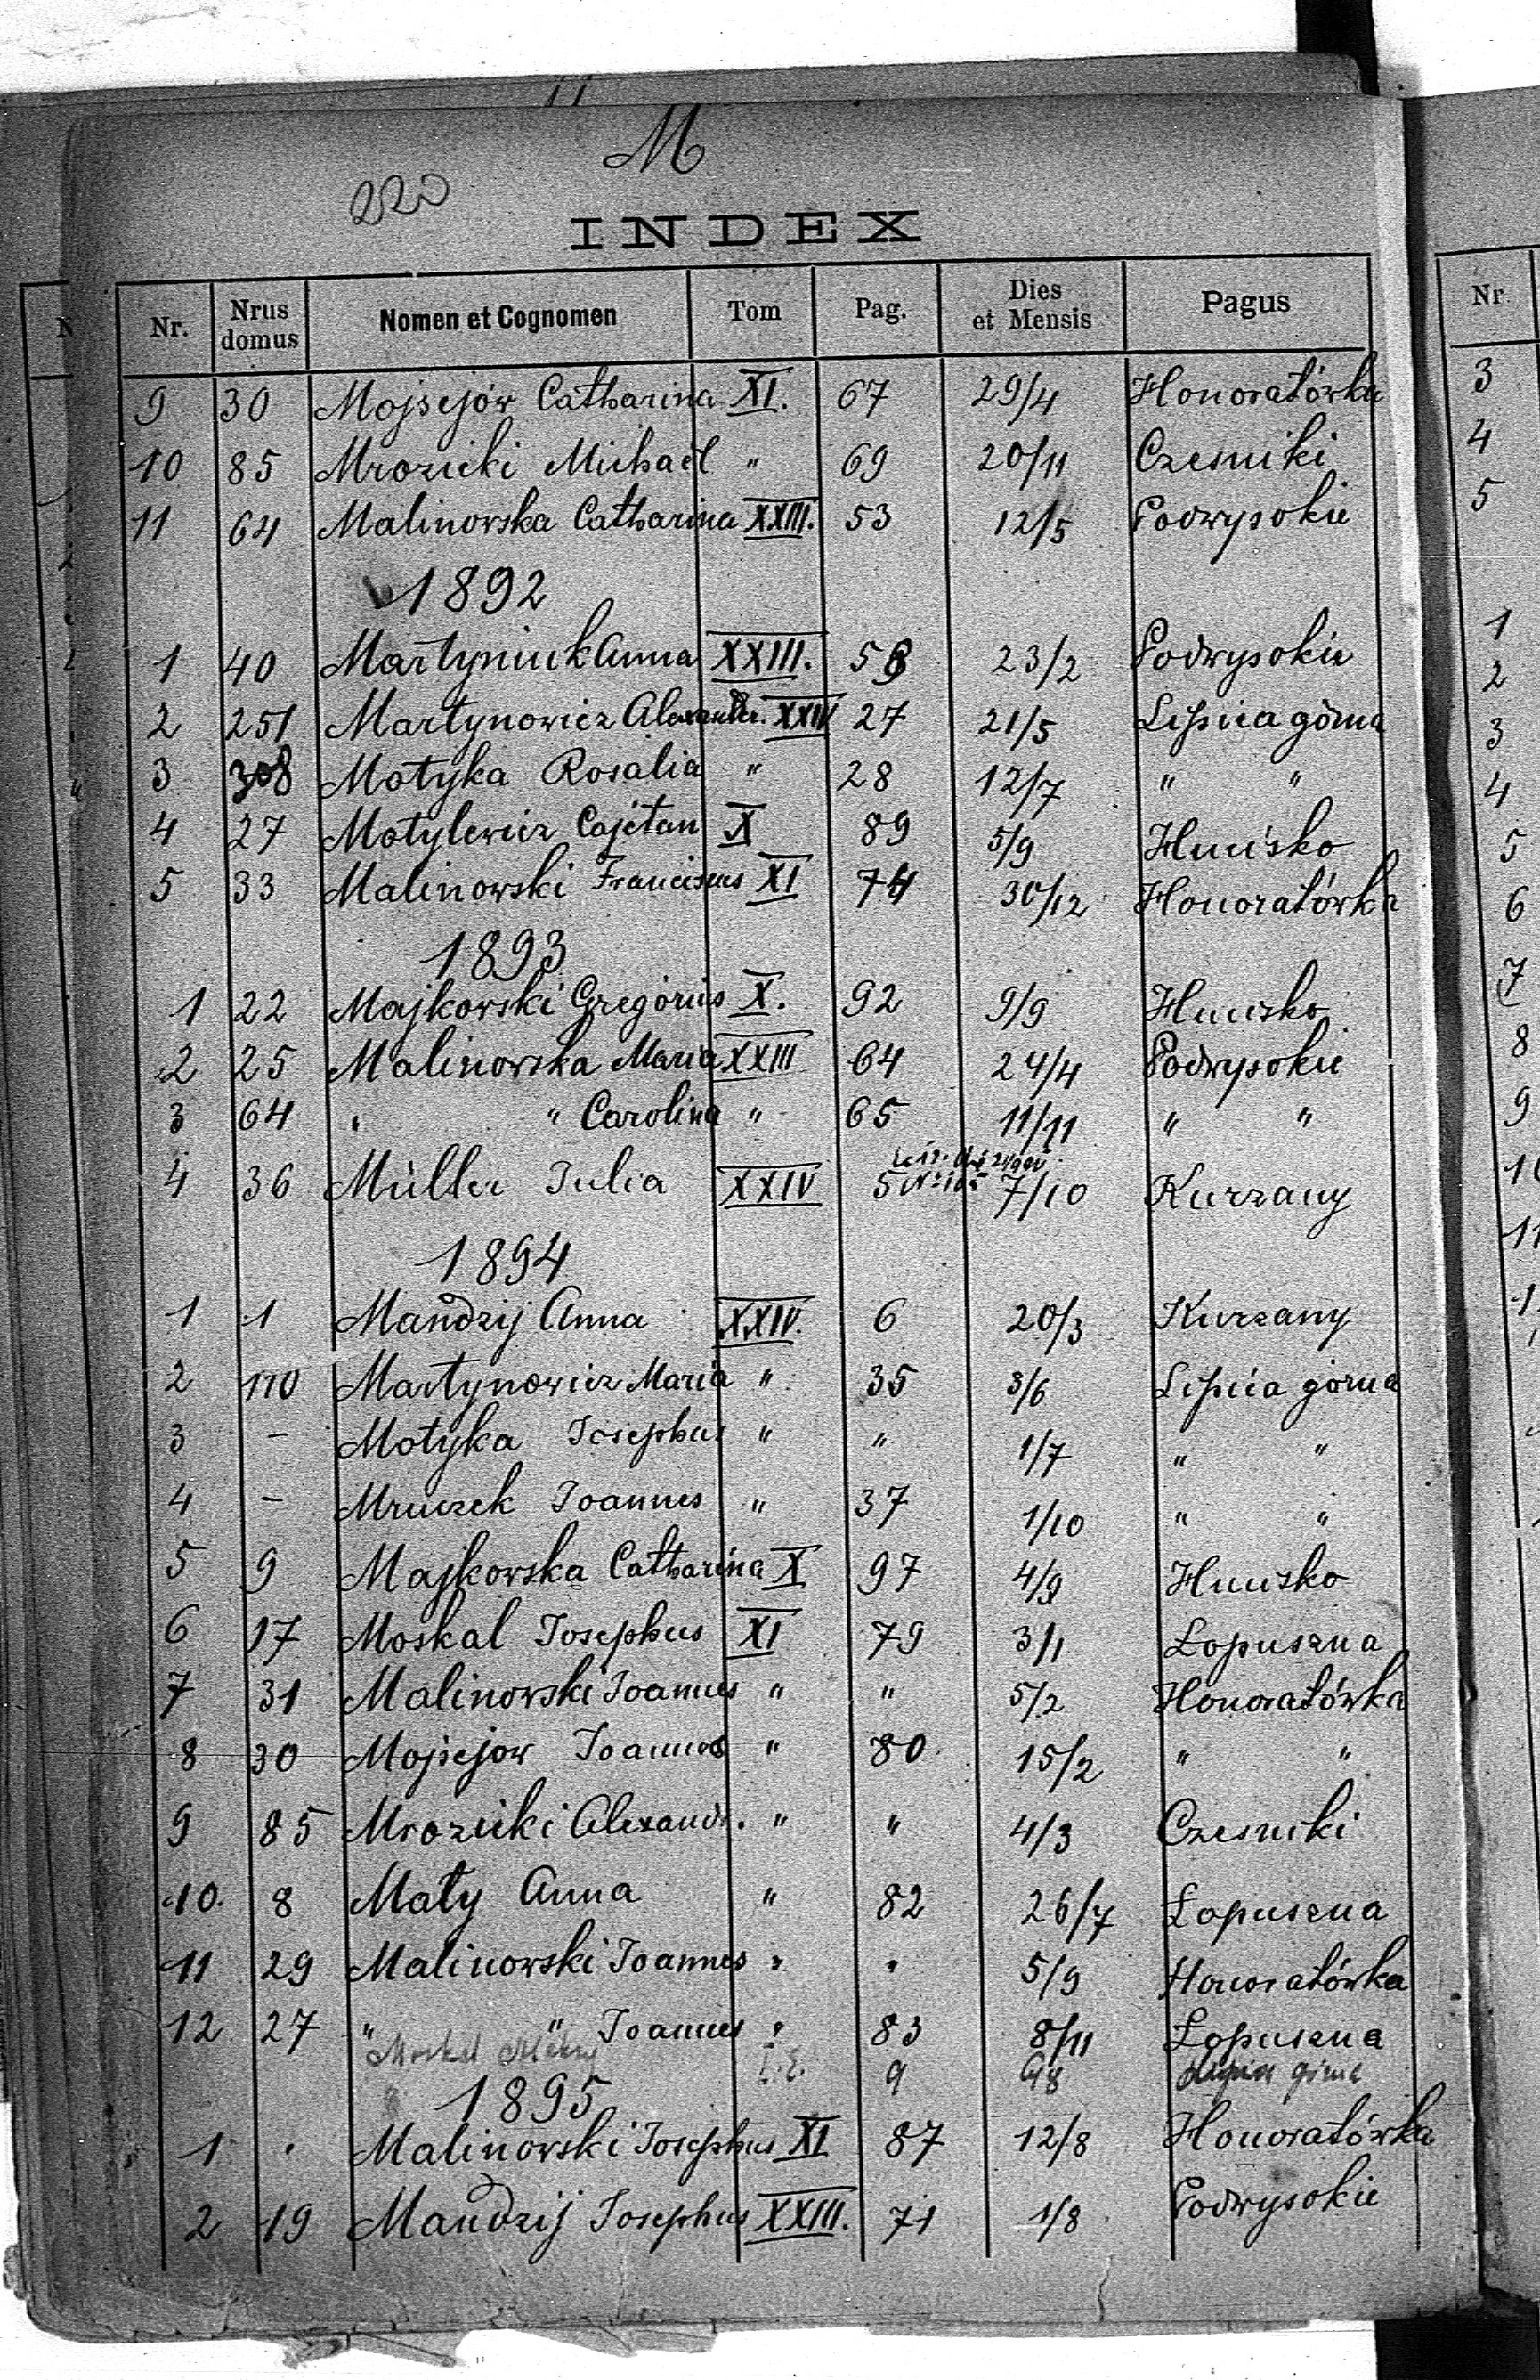 M
220
INDEX
Nr. Nrus domus Nomen et Cognomen Tom Pag. Dies et Mensis Pagus
9 30 Mojsejów Catharina XI. 67 29/4 Honoratówka
10 85 Mrozicki Michael " 69 20/11 Czesniki
11 64 Malinowska Catharina XXIII. 53 12/5 Podwysokie
1892
1 40 Martyniuk Anna XXIII. 58 23/2 Podwysokie
2 251 Martynowicz Alexander. XXIV 27 21/5 Lipica górna
3 308 Motyka Rosalia " 28 12/7 " "
4 27 Motylewicz Cajetan X 89 5/9 Hucisko
5 33 Malinowski Franciscus XI 74 30/12 Honoratówka
1893
1 22 Majkowski Gregorius X. 92 9/9 Hucisko
2 25 Malinowska Maria XXIII 64 24/4 Podwysokie
3 64 " " Carolina " 65 11/11 " "
4 36 Müller Julia XXIV 5 7/10 Kurzany
1894
1 1 Mandzij Anna XXIV. 6 20/3 Kurzany
2 170 Martynowicz Maria " 35 3/6 Lipica górna
3 - Motyka Josephus " " 1/7 " "
4 - Mruczek Joannes " 37 1/10 " "
5 9 Majkowska Catharina X 97 4/9 Hucisko
6 17 Moskal Josephus XI 79 3/1 Lopuszna
7 31 Malinowski Joannes " " 5/2 Honoratówka
8 30 Mojsejow Joannes " 80 15/2 " "
9 85 Mrozicki Alexandr. " " 4/3 Czesniki
10. 8 Mały Anna " 82 26/7 Lopuszna
11 29 Malinowski Joannes " " 5/9 Honoratówka
12 27 " " Joannes " 83 8/11 Lopuszna
Moskal 9 Lipica górna
1895
1 . Malinowski Josephus XI 87 12/8 Honoratówka
2 19 Mandzij Josephus XXIII. 71 1/8 Podwysokie
Nr.
3
4
5
1
2
3
4
5
6
7
8
9